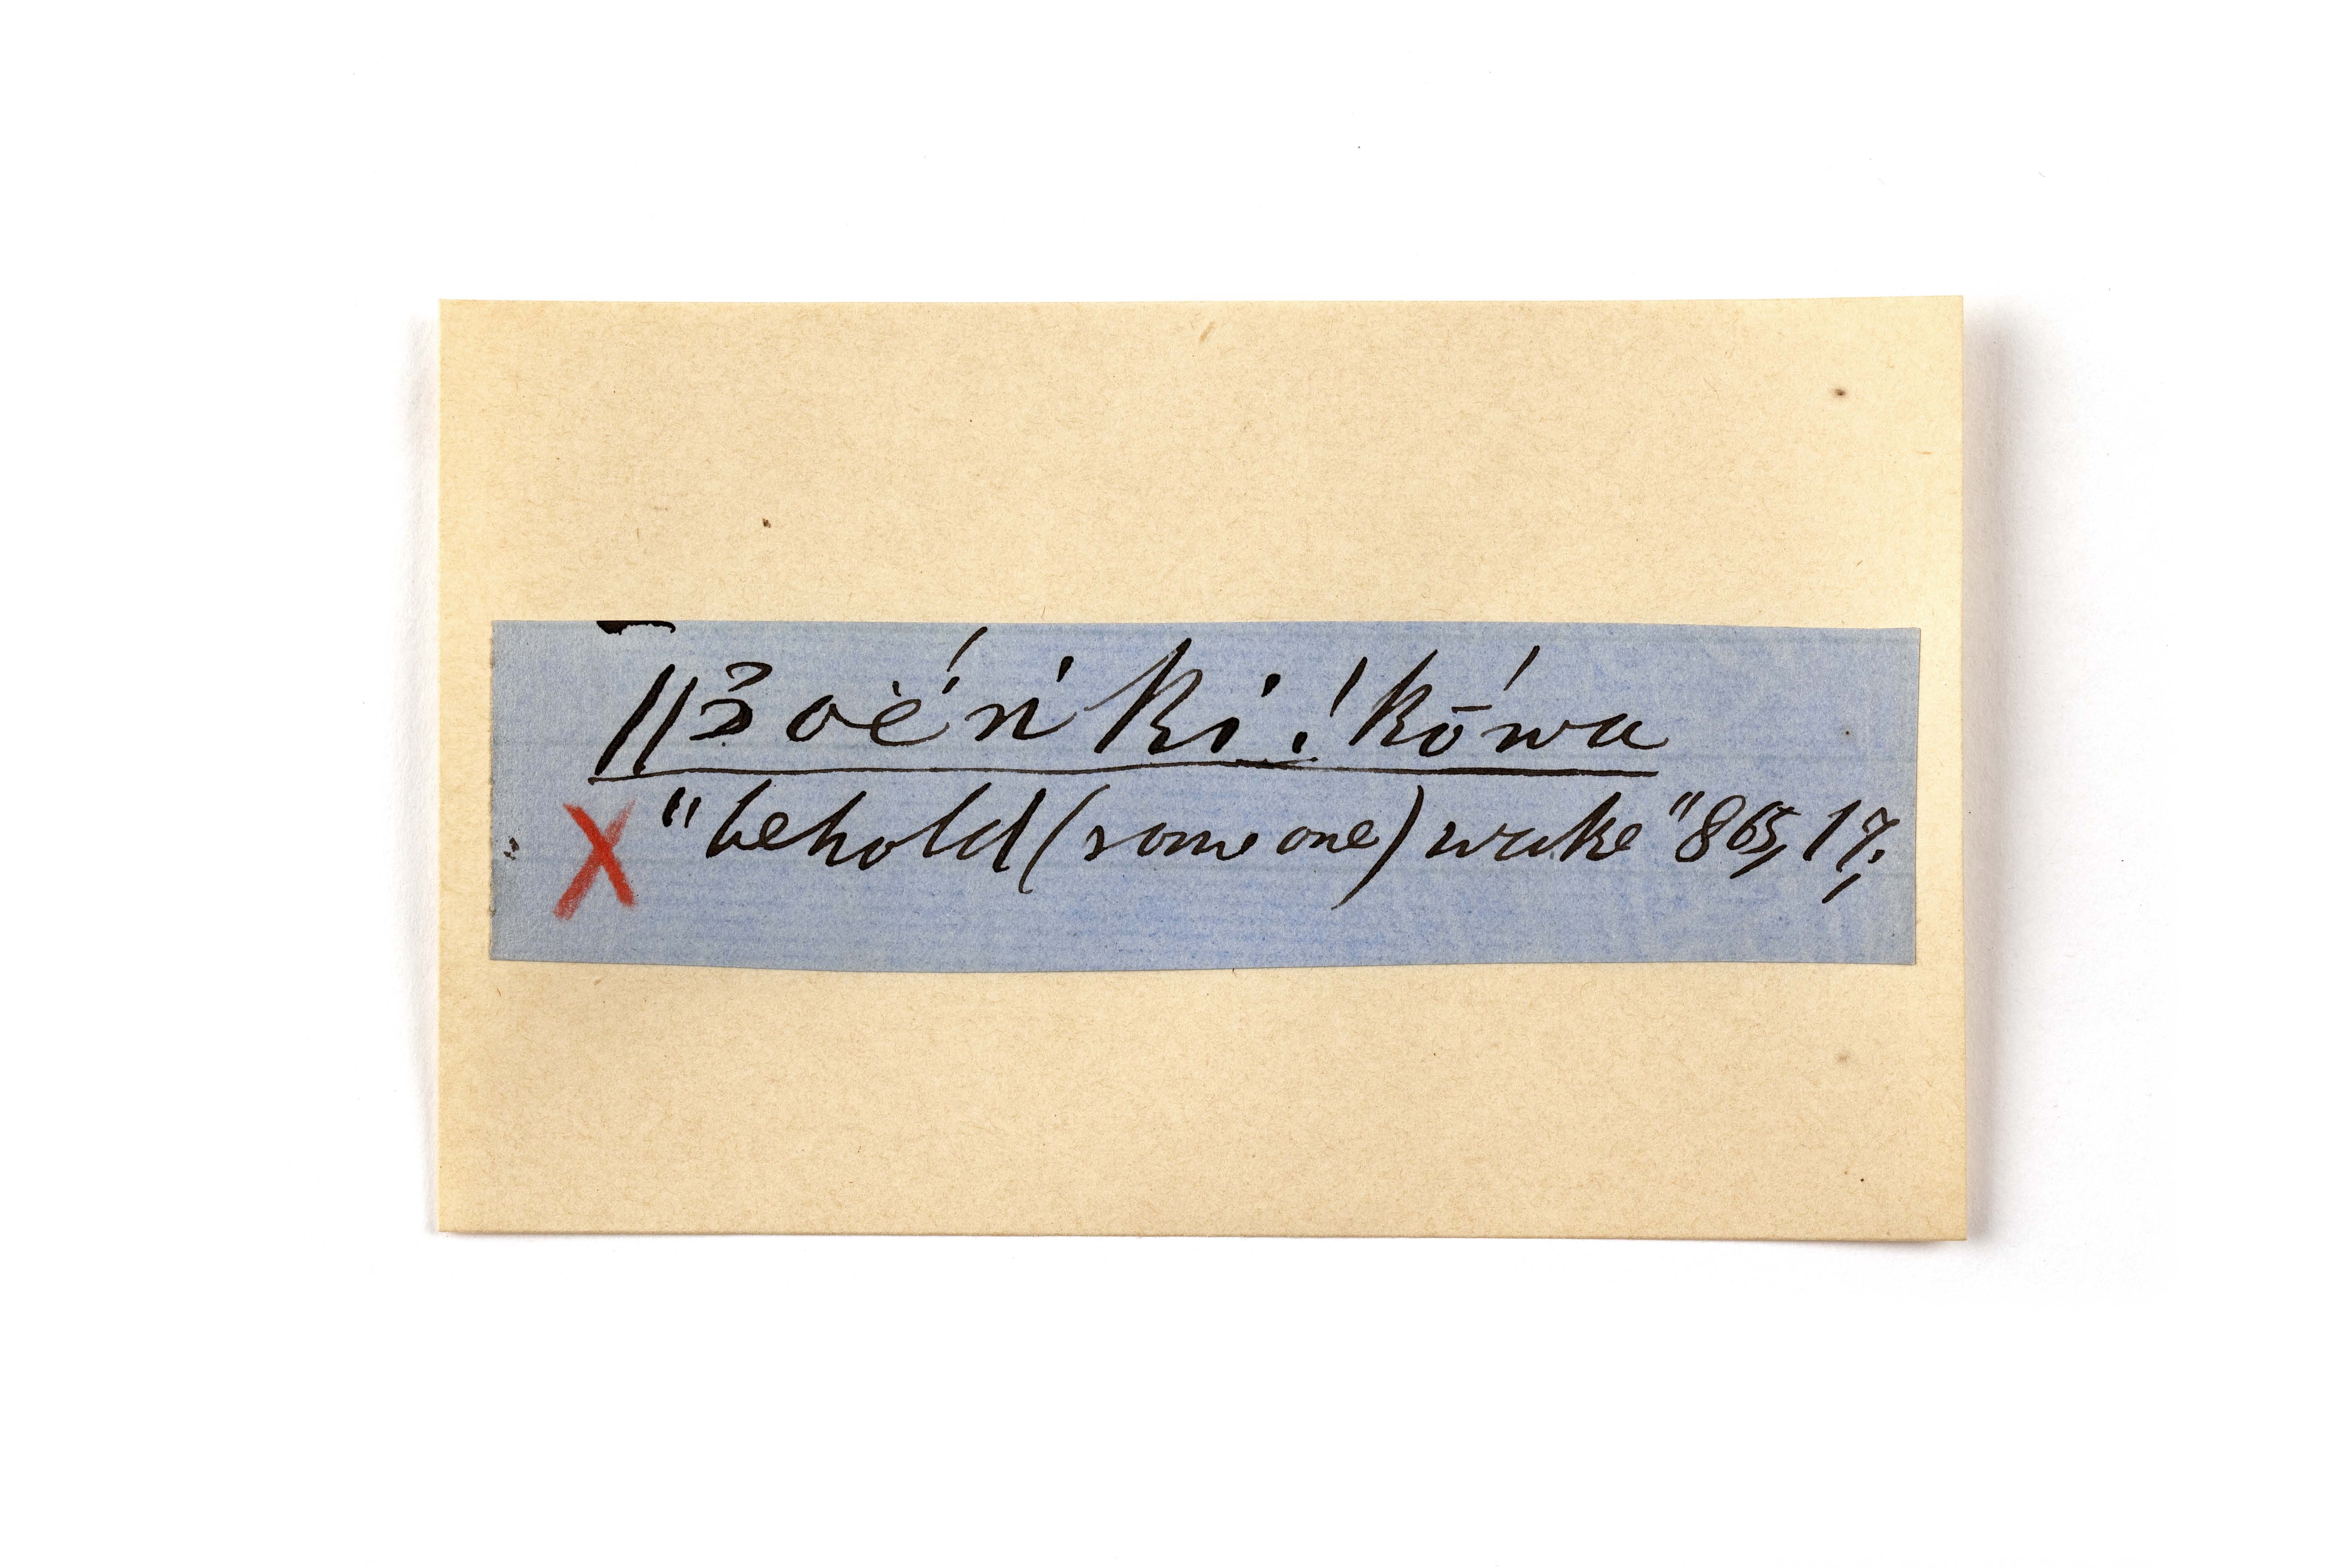 ǁʒoéń ki ! kṓwa
X "behold (some one) wake" 865, 17,